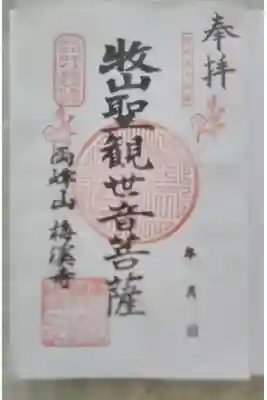 奉拝
牧山聖観世音菩薩
年 月 日
両峰山 梅溪寺